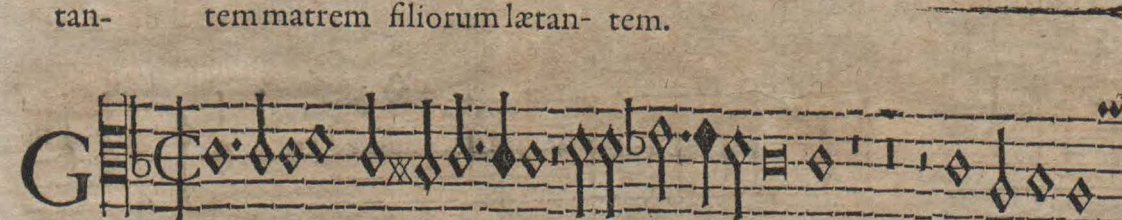 tan- tem matrem filiorum lætan- tem.
G